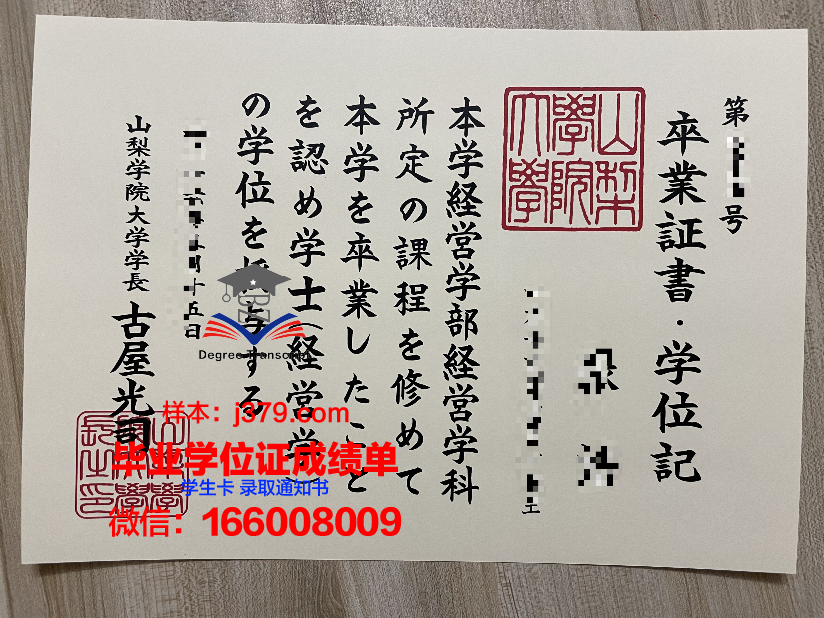 第 号
卒業証書・学位記
山梨
學院
大學
本学経営学部経営学科
所定の課程を修めて
本学を卒業したこと
を認め学士(経営学)
の学位を授与する
月十五日
山梨学院大学学長 古屋光司
Degree Transcript
样本：j379.com
毕业学位证成绩单
学生卡 录取通知书
微信：166008009